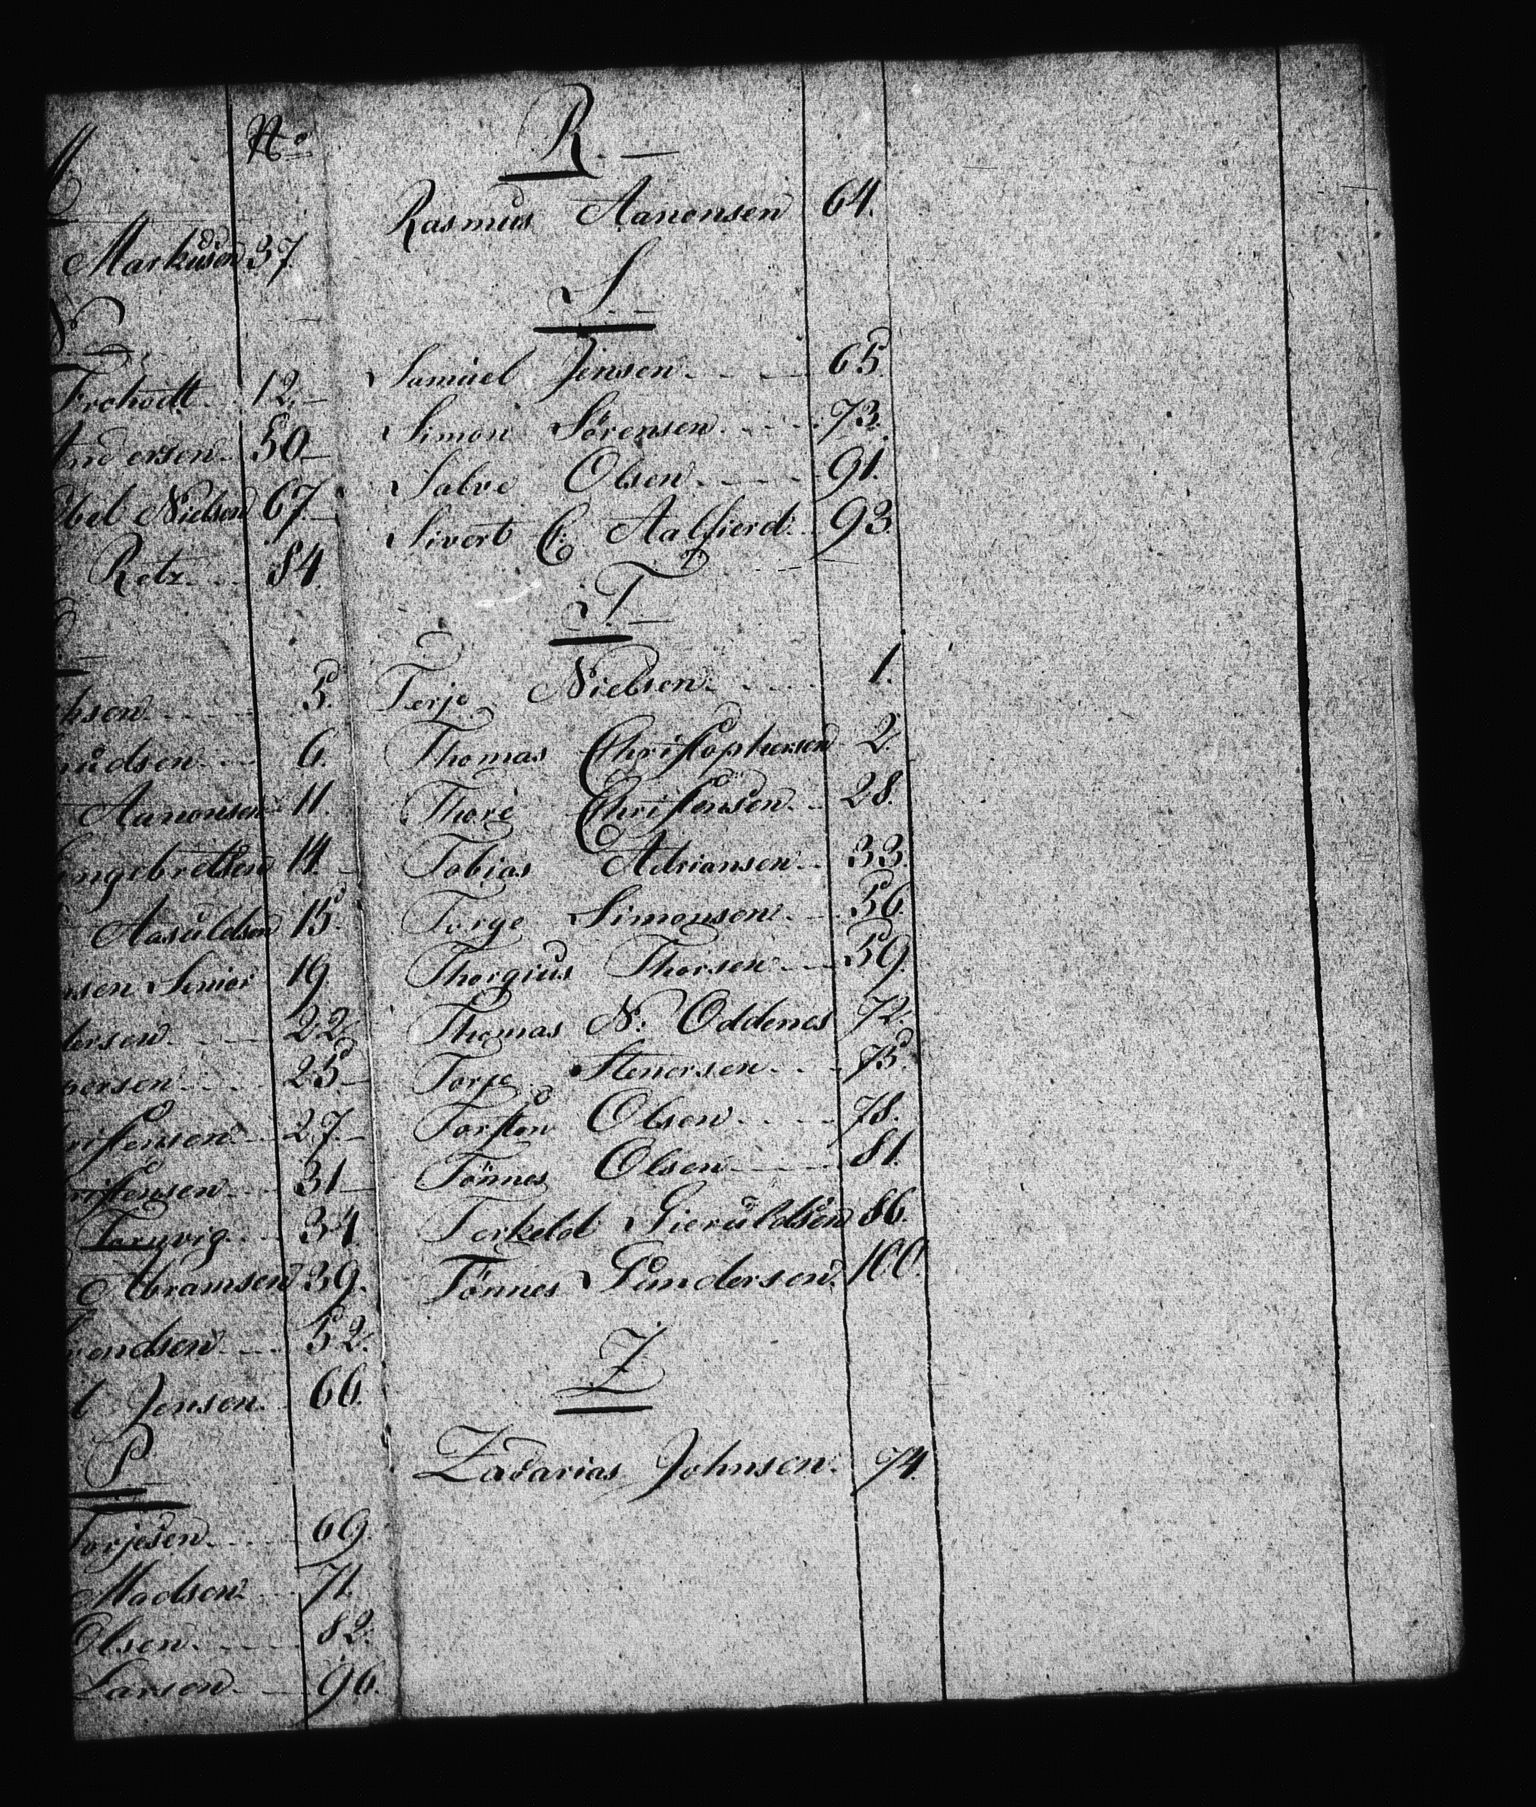 M No
Markusen 37.
N
Frehodt 12.
Andersen 50
Abel Nielsen 67.
Retz 84
ksen 5.
nudsen 6.
Aanonsen 11.
Engebretsen 14.
Aasuldsen 15.
nsen Senior 19.
dersen 22
gersen 25
ristensen 27.
ristensen 31
Taruvig 34.
Abramsen 39.
vendsen 52.
Jensen 66.
P
Torjesen 69.
Madsen 71
Olsen 82.
Larsen 96.
R.
Rasmus Aanonsen 64.
S.
Samuel Jensen 65
Simon Sörensen 73.
Salve Olsen 91.
Sivert C. Aalfierd 93.
T.
Terje Nielsen 1.
Thomas Christophersen 2.
Thore Christensen 28.
Tobias Adriansen 33.
Torge Simonsen 56.
Thorgius Thorsen 59.
Thomas N. Oddenes 72.
Torje Stenersen 75.
Torsten Olsen 78.
Tönnes Olsen 81.
Terkeld Sieruldsen 86.
Tönnes Gundersen 100.
Z
Zacarias Johnsen. 74.